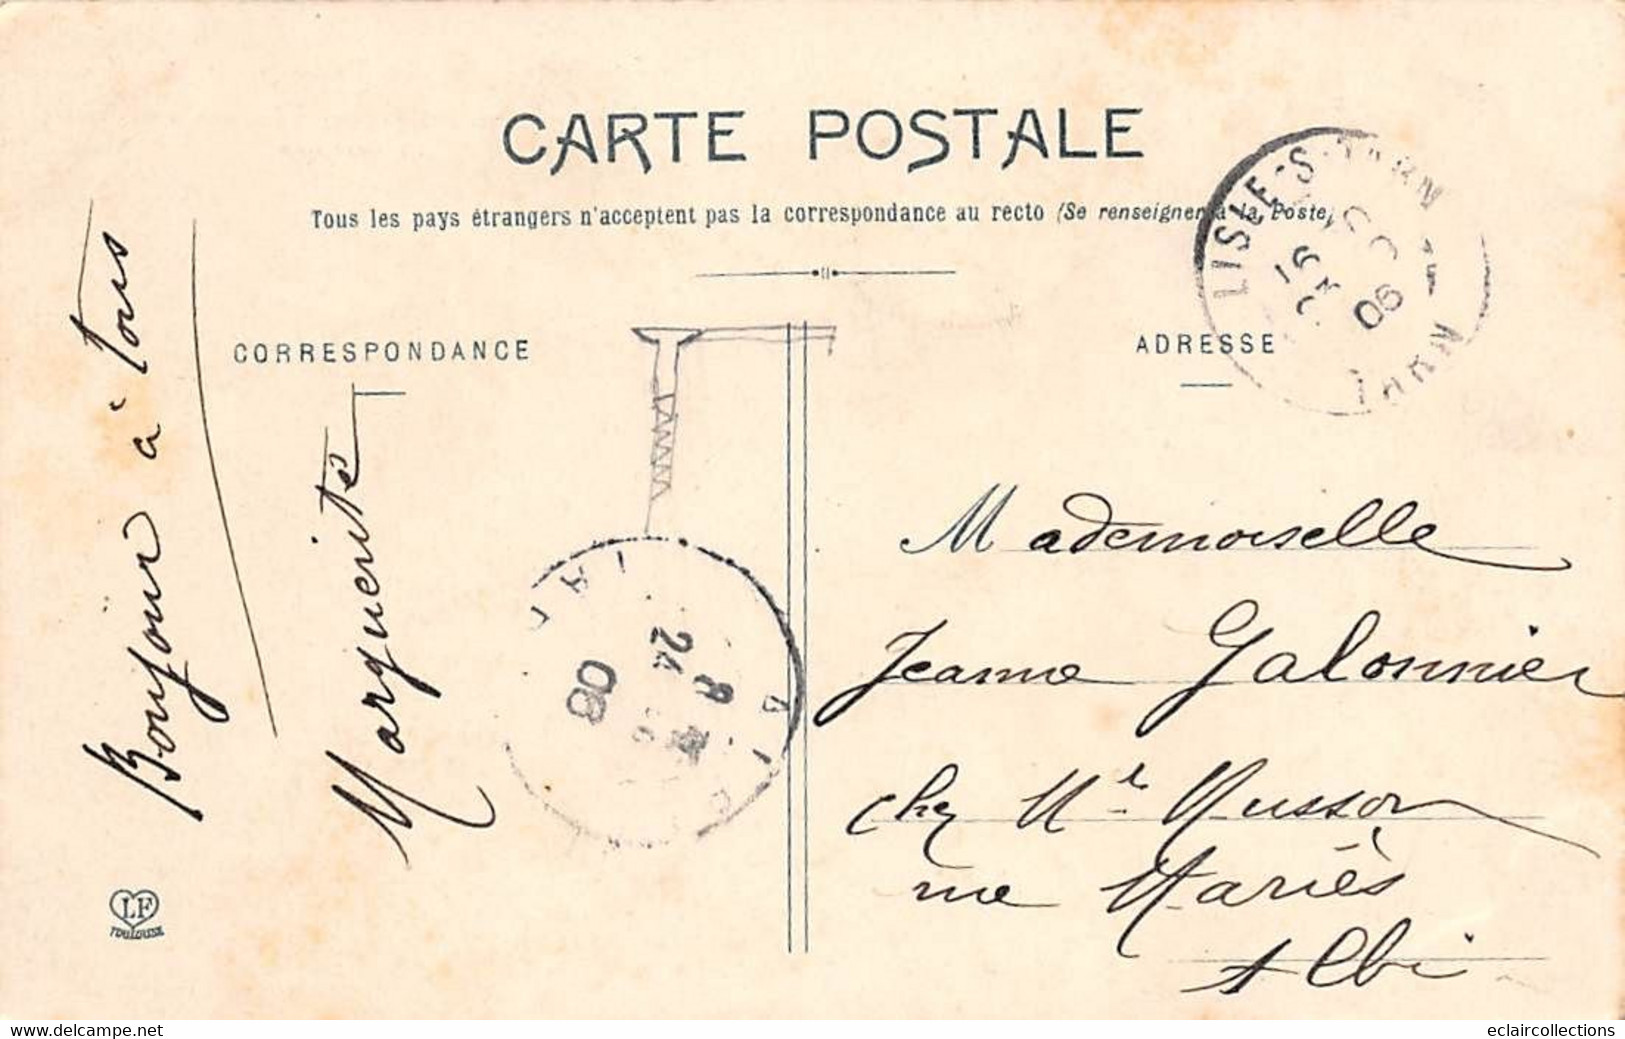 CARTE POSTALE
Tous les pays étrangers n'acceptent pas la correspondance au recto (Se renseigner à la Poste)
CORRESPONDANCE
ADRESSE
LISLE-S-TARN
TARN
16
06
Bonjour à tous
Marguerite
24
08
Mademoiselle
Jeanne Galonnier
chez Mr Musson
rue Mariès
Albi
LF
TOULOUSE
eclaircollections